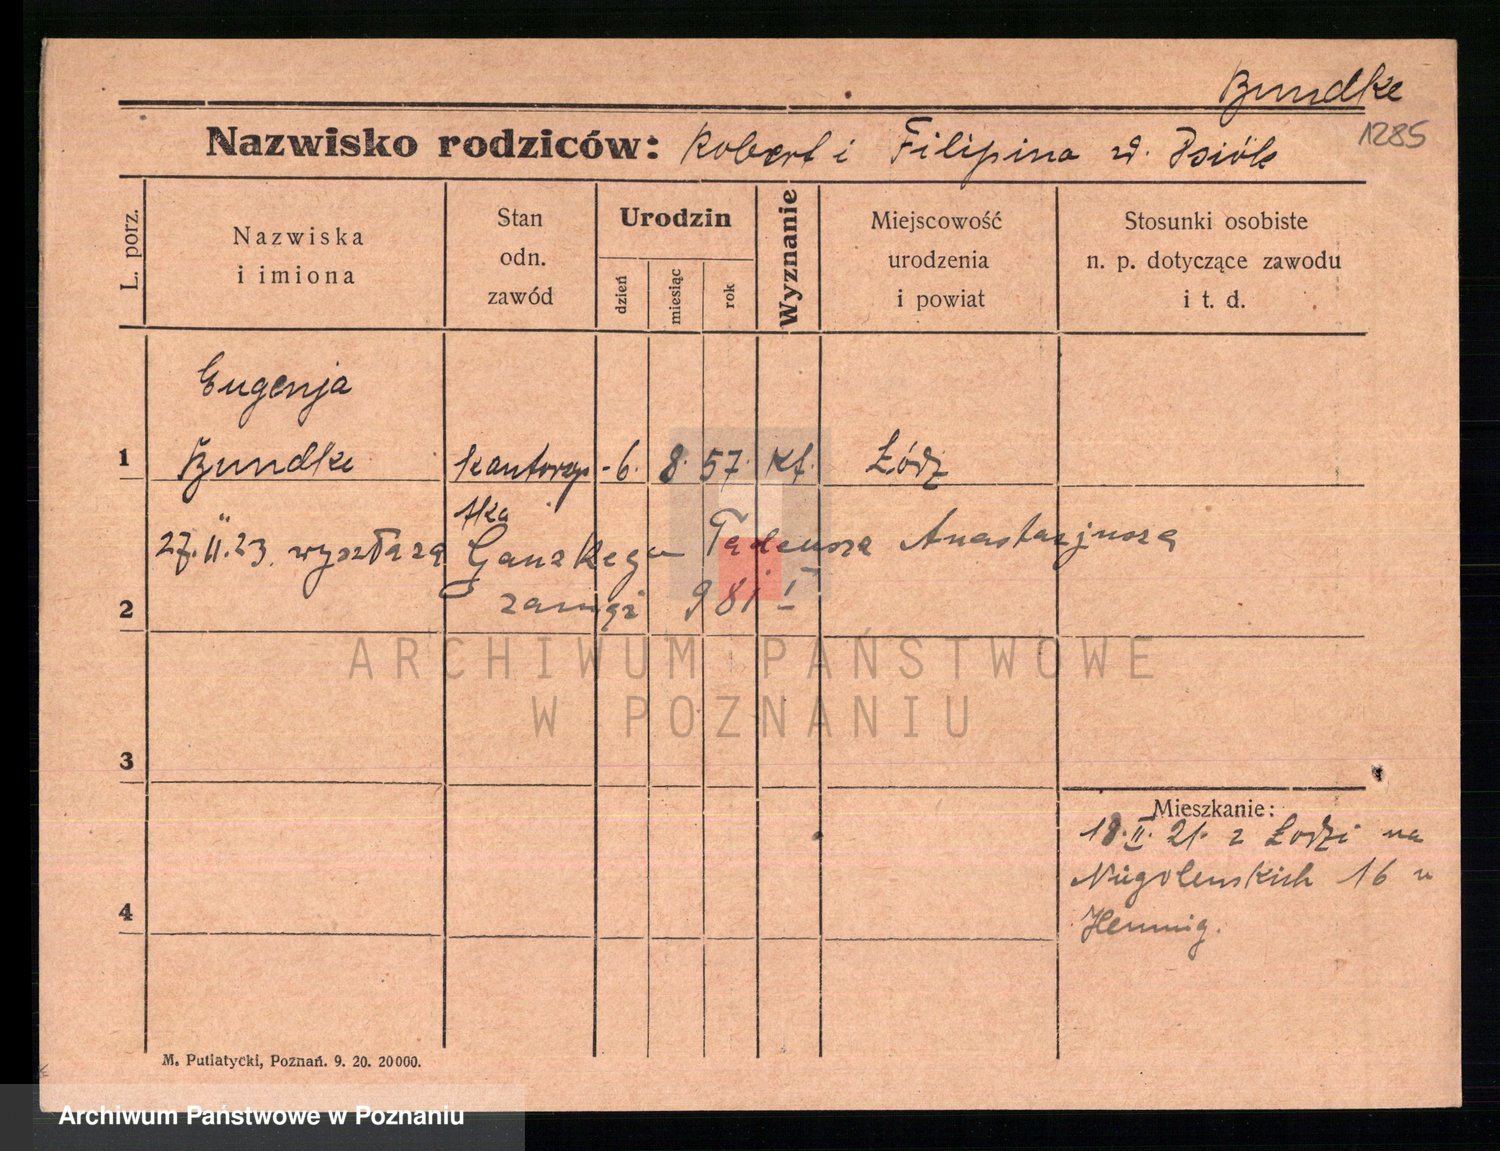 Bundke
1285
Nazwisko rodziców: Robert i Filipina
L. porz.
Nazwiska
i imiona
Stan
odn.
zawód
Urodzin
dzień
miesiąc
rok
Wyznanie
Miejscowość
urodzenia
i powiat
Stosunki osobiste
n. p. dotyczące zawodu
i t. d.
Eugenja
1 Bundke kantorzy- 6. 8. 57. Łódź
stka
27.II.23. wyszła za Tadeusza Anastazjusza
2 zamąż 981 I
ARCHIWUM PAŃSTWOWE
W POZNANIU
3
Mieszkanie:
18.II.21. z Łodzi na
16 u
4 Hennig.
M. Putiatycki, Poznań. 9. 20. 20000.
Archiwum Państwowe w Poznaniu